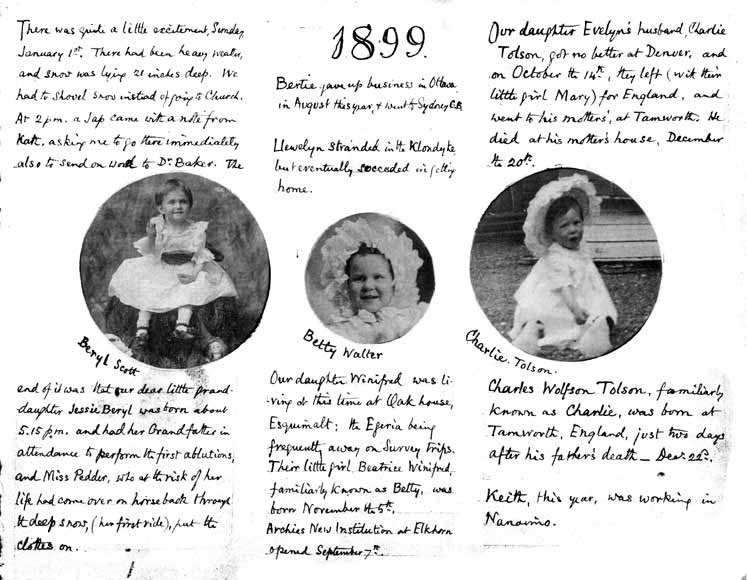 There was quite a little excitement, Sunday,
January 1st. There had been heavy weather,
and snow was lying 21 inches deep. We
had to shovel snow instead of going to Church.
At 2 p.m. a Jap came with a note from
Kate, asking me to go there immediately
also to send on word to Dr. Baker. The
Beryl Scott
end of it was that our dear little grand-
daughter Jessie Beryl was born about
5.15 p.m. and had her Grandfather in
attendance to perform the first ablutions,
and Miss Pedder, who at the risk of her
life had come over on horseback through
the deep snow, (her first ride), put the
clothes on.
1899.
Bertie gave up business in Ottawa
in August this year, & went to Sydney C.B.
Llewelyn stranded in the Klondyke
but eventually succeeded in getting
home.
Betty Walter
Our daughter Winifred was li-
ving at this time at Oak house,
Esquimalt; the Egeria being
frequently away on Survey trips.
Their little girl Beatrice Winifred,
familiarly known as Betty, was
born November the 5th.
Archies New Institution at Elkhorn
opened September 7th.
Our daughter Evelyn's husband, Charlie
Tolson, got no better at Denver, and
on October the 14th, they left (with their
little girl Mary) for England, and
went to his mothers', at Tamworth. He
died at his mother's house, December
the 20th.
Charlie. Tolson.
Charles Wolfson Tolson, familiarly
known as Charlie, was born at
Tamworth, England, just two days
after his father's death - Dec. 22d.
Keith, this year, was working in
Nanaimo.